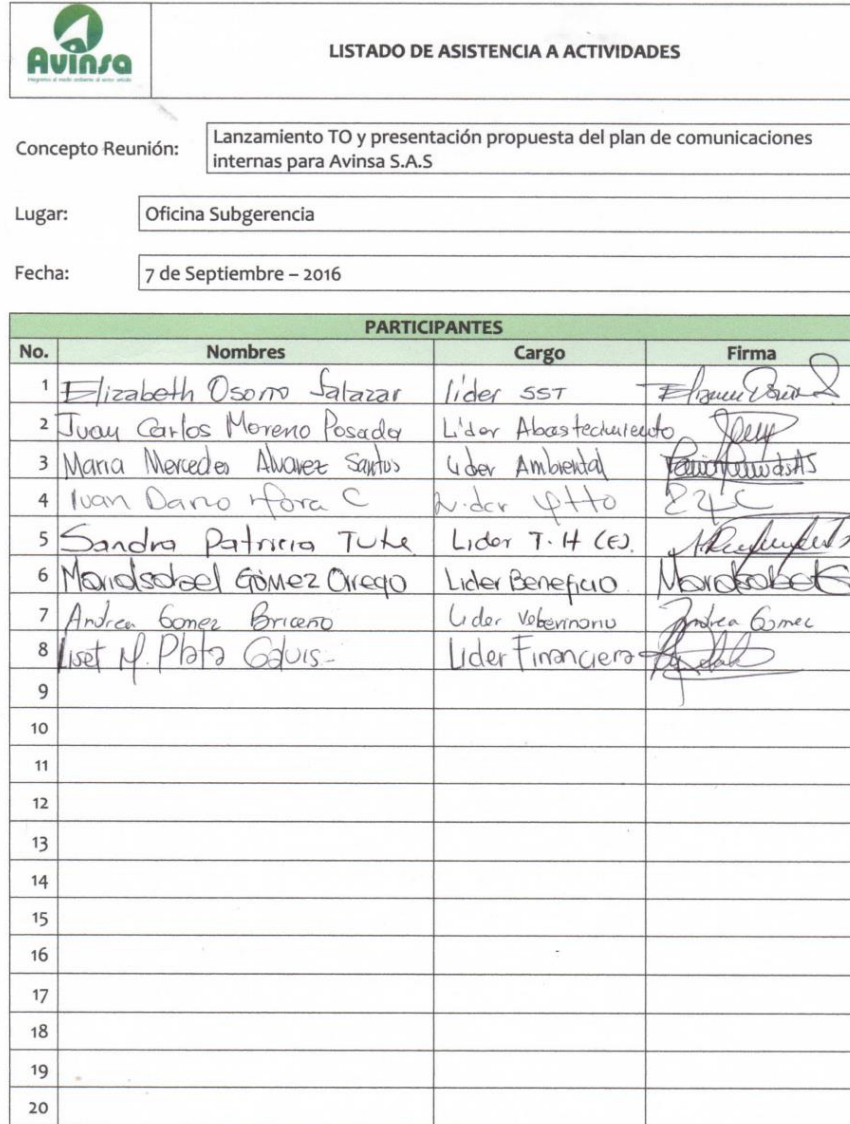 Avinsa
LISTADO DE ASISTENCIA A ACTIVIDADES
Concepto Reunión:
Lanzamiento TO y presentación propuesta del plan de comunicaciones
internas para Avinsa S.A.S
Lugar:
Oficina Subgerencia
Fecha:
7 de Septiembre – 2016
PARTICIPANTES
No. Nombres Cargo Firma
1 Elizabeth Osorio Salazar líder SST
2 Juan Carlos Moreno Posada Líder Abastecimiento
3 Maria Mercedes Alvarez Santos Lider Ambiental
4 Ivan Dario Mora C Lider
5 Sandra Patricia Lider T.H (E).
6 Mariaisabel Gómez Orrego Lider Beneficio
7 Andrea Gomez Briceño Lider Veterinario Andrea Gomez
8 Liset M. Plata Galvis- Lider Financiera
9
10
11
12
13
14
15
16
17
18
19
20